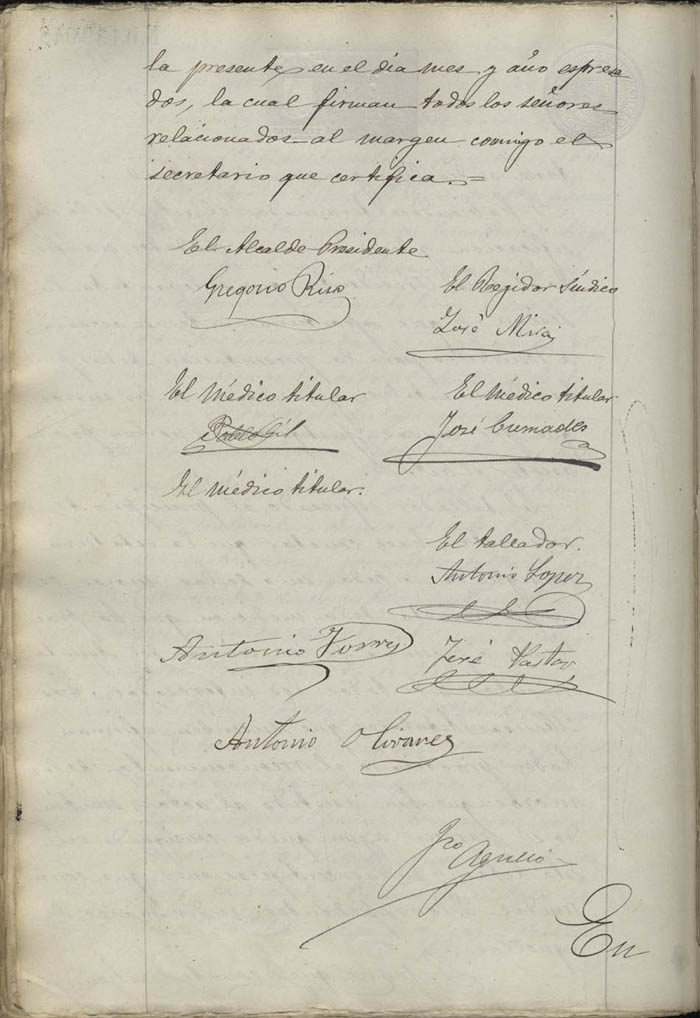 la presente en el día mes y año espresa
dos, la cual firman todos los señores
relacionados al margen conmigo el
secretario que certifica.=
El Alcalde Presidente
Gregorio Rico
El Regidor Síndico
José Mira
El Médico titular
El Médico titular
José Cumades
El Médico titular.
El tallador.
Antonio Lopez
Antonio Torres
José Pastor
Antonio Olivares
En